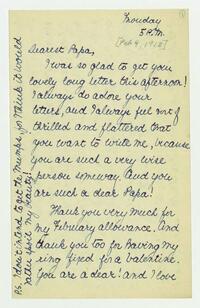 Monday
5 P.M.
[Feb 4, 1918]
Dearest Papa,
I was so glad to get you
lovely long letter this afternoon!
I always do adore your
leters, and I always feel sort of
thrilled and flattered that
you want to write me, because
you are such a very wise
person someway. And you
are such a dear Papa!
Thank you very much for
my February allowance. And
thank you too for having my
ring fixed for a valentine.
You are a dear! and I love
P.S. I don't intend to get the Mumps, for I think it would
rather spoil my beauty!